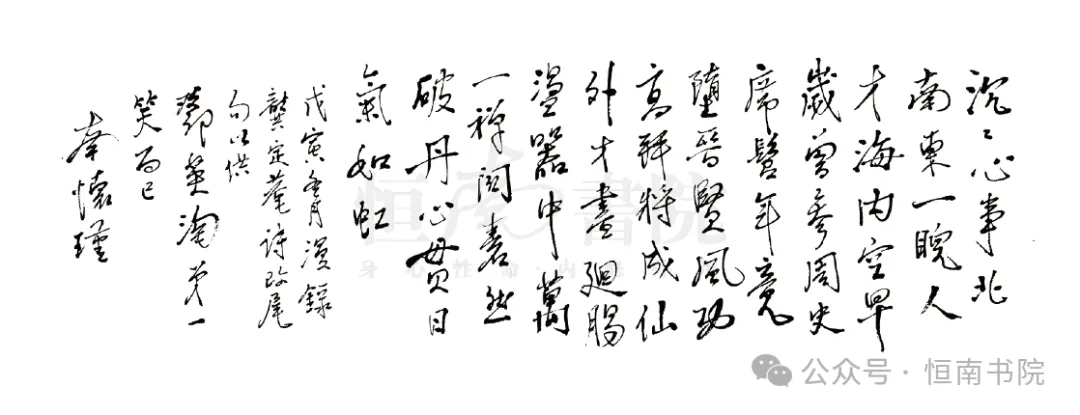 沉々心事北
南東一睨人
才海内空早
歲曾參周史
席髫年竟
墮晉賢風功
高拜將成仙
外才盡廻腸
盪器中萬
一禪関砉然
破丹心貫日
氣如虹
戊寅冬月漫錄
龔定菴詩改尾
句以供
弟一
笑而已
南懷瑾
恒南書院
身心性命·内
公众号·恒南书院